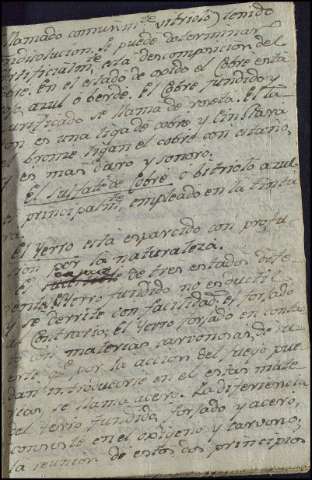 llamado comunm.te vitriolo) tenido
en disolucion. Se puede determinar
artificialm.te esta descomposicion del
cobre. En el estado de oxido el Cobre esta
azul o verde. El Cobre fundido y
purificado se llama de roseta. El la
ton es una liga de cobre y
el bronze ligan el cobre con estaño,
y es mas duro y sonoro.
El sulfate de Cobre o bitriolo azul
es principalm.te empleado en la tintu
ra.
El Yerro está esparcido con profu
sion por la naturaleza.
El es capaz de tres estados dife
rentes. El Yerro fundido no es ductil
y se derrite con facilidad, el forjado
al contrario; el Yerro forjado en conta
cto con materias carvonosas, de su
erte que por la accion del fuego pue
dan introducirse en el estas mate
rias, se llama acero. La diferiencia
del Yerro fundido, forjado y acero,
consiste en el oxigeno y carvono,
la reunion de estos dos principios